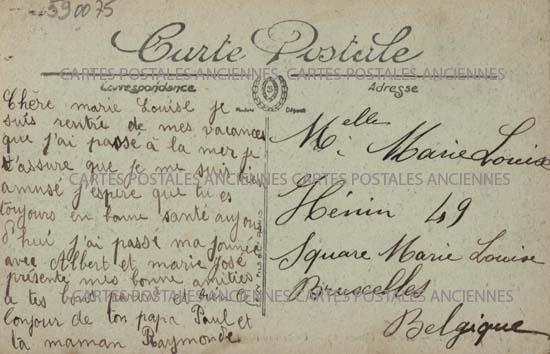 590075
Carte Postale
CARTES POSTALES ANCIENNES
Correspondance
Adresse
Modèle Déposé
Chère marie Louise Je
suis rentré de mes vacances
que j'ai passé à la mer je
t'assure que je me suis bien
amusé j'espère que tu es
toujours en bonne santé aujour
d'hui j'ai passé ma journée
avec Albert et marie José
présente mes bonne amitiés
à tes et un
bonjour de ton papa Paul et
ta maman Raymonde
CARTES POSTALES ANCIENNES
CARTES POSTALES ANCIENNES
Melle Marie Louise
Hénin 49
Square Marie Louise
Bruxelles
Belgique